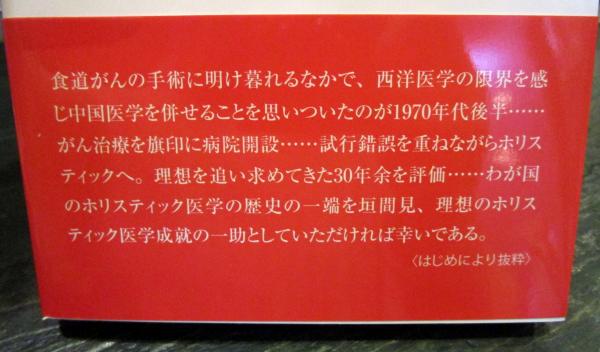 食道がんの手術に明け暮れるなかで、西洋医学の限界を感
じ中国医学を併せることを思いついたのが1970年代後半……
がん治療を旗印に病院開設……試行錯誤を重ねながらホリス
ティックへ。理想を追い求めてきた30年余を評価……わが国
のホリスティック医学の歴史の一端を垣間見、理想のホリス
ティック医学成就の一助としていただければ幸いである。
〈はじめにより抜粋〉